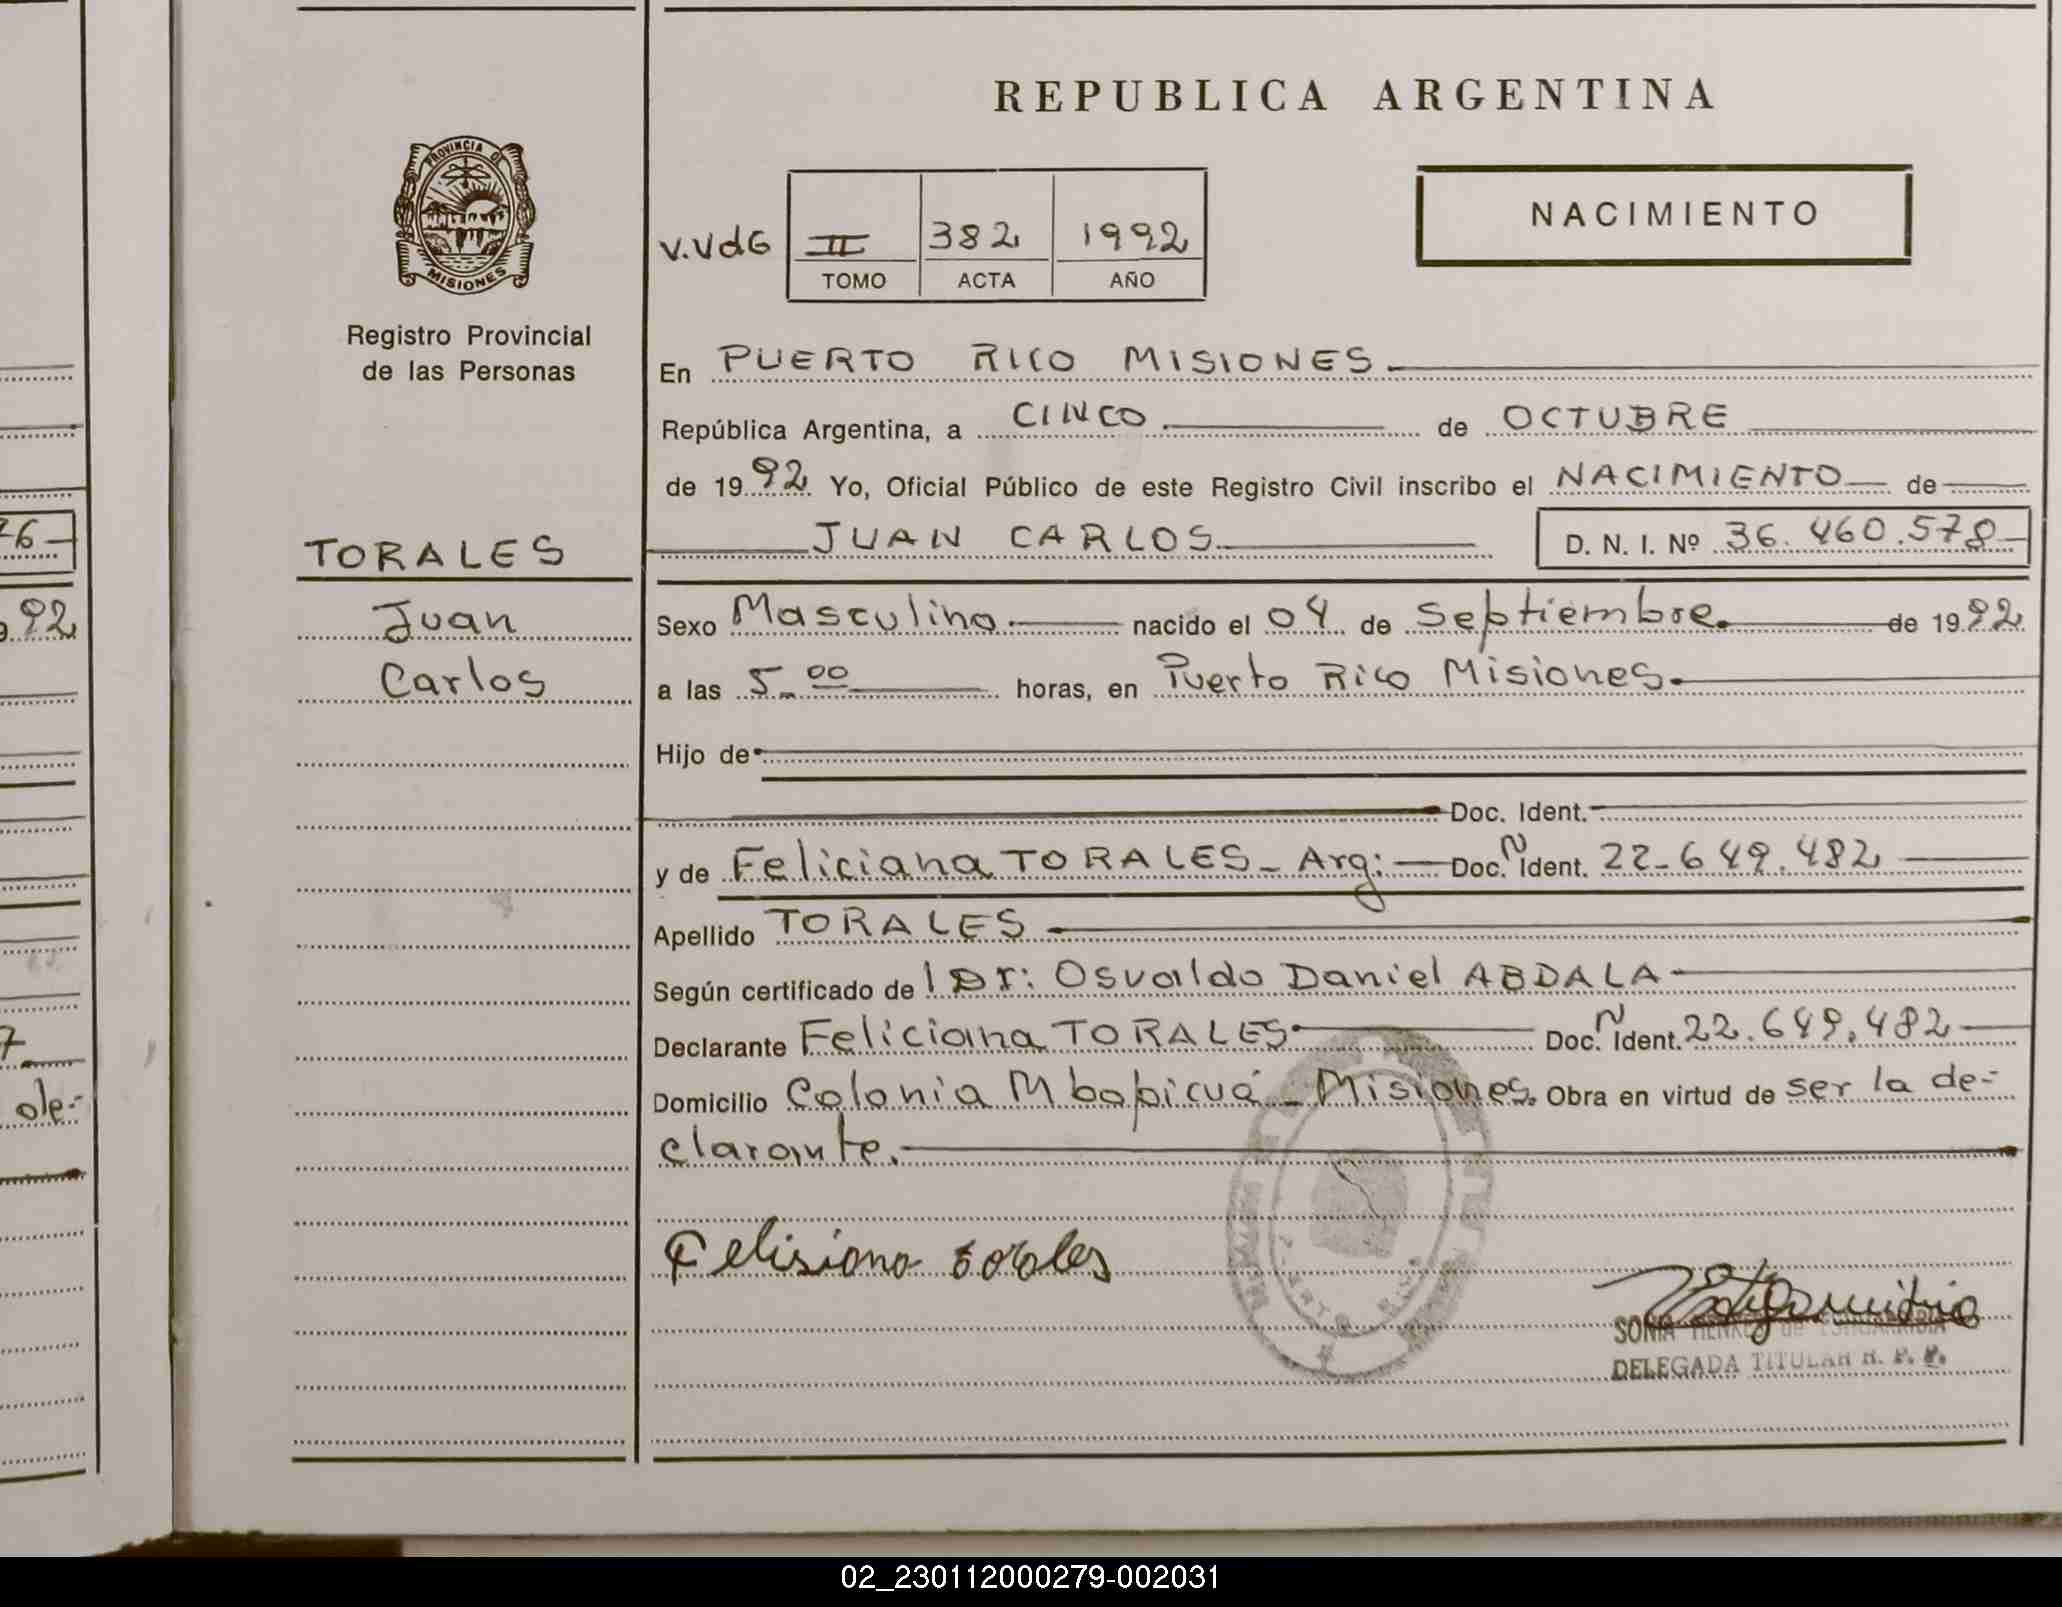 REPUBLICA ARGENTINA
PROVINCIA DE
MISIONES
Registro Provincial
de las Personas
NACIMIENTO
V.VdG II 382 1992
TOMO ACTA AÑO
En PUERTO RICO MISIONES
República Argentina, a CINCO de OCTUBRE
de 1992 Yo, Oficial Público de este Registro Civil inscribo el NACIMIENTO de
JUAN CARLOS D. N. I. Nº 36.460.578
TORALES
Juan
Carlos
Sexo Masculino nacido el 04 de Septiembre. de 1992
a las 5_00 horas, en Puerto Rico Misiones.
Hijo de
Doc. Ident.
y de Feliciana TORALES_ Arg: Doc. N Ident. 22-649.482
Apellido TORALES
Según certificado de l Dr: Osvaldo Daniel ABDALA
Declarante Feliciana TORALES Doc. N Ident. 22.649.482
Domicilio Colonia Mbopicuá _ Misiones. Obra en virtud de ser la de-
clarante.
Felisiana torales
SONIA
DELEGADA TITULAR R. P. P.
76
92
7
de-
02_230112000279-002031